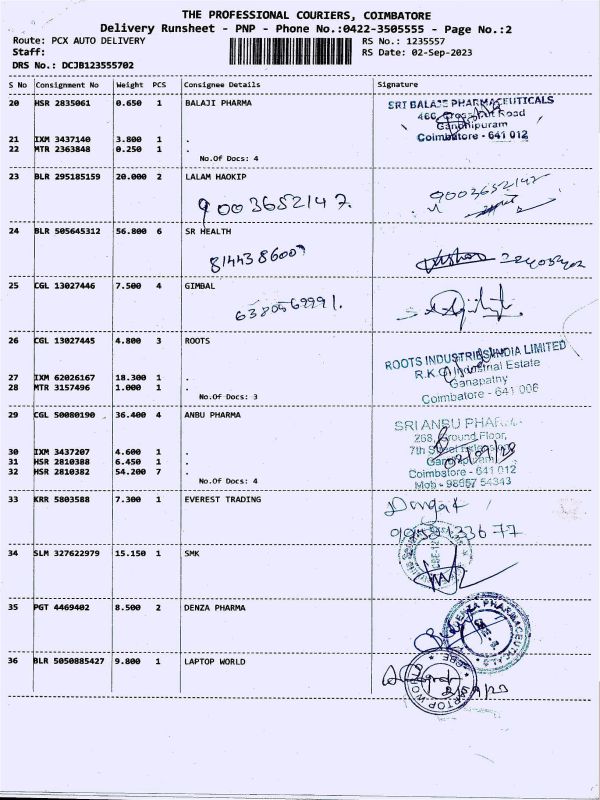 THE PROFESSIONAL COURIERS, COIMBATORE
Delivery Runsheet - PNP - Phone No.:0422-3505555 - Page No.:2
Route: PCX AUTO DELIVERY RS No.: 1235557
Staff: RS Date: 02-Sep-2023
DRS No.: DCJB123555702
S No Consignment No Weight PCS Consignee Details Signature
20 HSR 2835061 0.650 1 BALAJI PHARMA
SRI BALAJI PHARMACEUTICALS
466, Cross Cut Road
Gandhipuram
Coimbatore - 641 012
21 IXM 3437140 3.800 1 .
22 MTR 2363848 0.250 1 .
No.Of Docs: 4
23 BLR 295185159 20.000 2 LALAM HAOKIP
9003652147. 9003652147
24 BLR 505645312 56.800 6 SR HEALTH
8144386007
25 CGL 13027446 7.500 4 GIMBAL
6380569991.
26 CGL 13027445 4.800 3 ROOTS
ROOTS INDUSTRIES INDIA LIMITED
R.K.G Industrial Estate
Ganapathy
Coimbatore - 641 006
27 IXM 62026167 18.300 1 .
28 MTR 3157496 1.000 1 .
No.Of Docs: 3
29 CGL 50080190 36.400 4 ANBU PHARMA
SRI ANBU PHARMA
268, Ground Floor,
7th Street Extension
Gandhipuram
02/09/23
Coimbatore - 641 012
Mob - 98657 54343
30 IXM 3437207 4.600 1 .
31 HSR 2810388 6.450 1 .
32 HSR 2810382 54.200 7 .
No.Of Docs: 4
33 KRR 5803588 7.300 1 EVEREST TRADING
34 SLM 327622979 15.150 1 SMK
35 PGT 4469402 8.500 2 DENZA PHARMA
DENZA PHARMACEUTICALS
36 BLR 5050885427 9.800 1 LAPTOP WORLD
LAPTOP WORLD